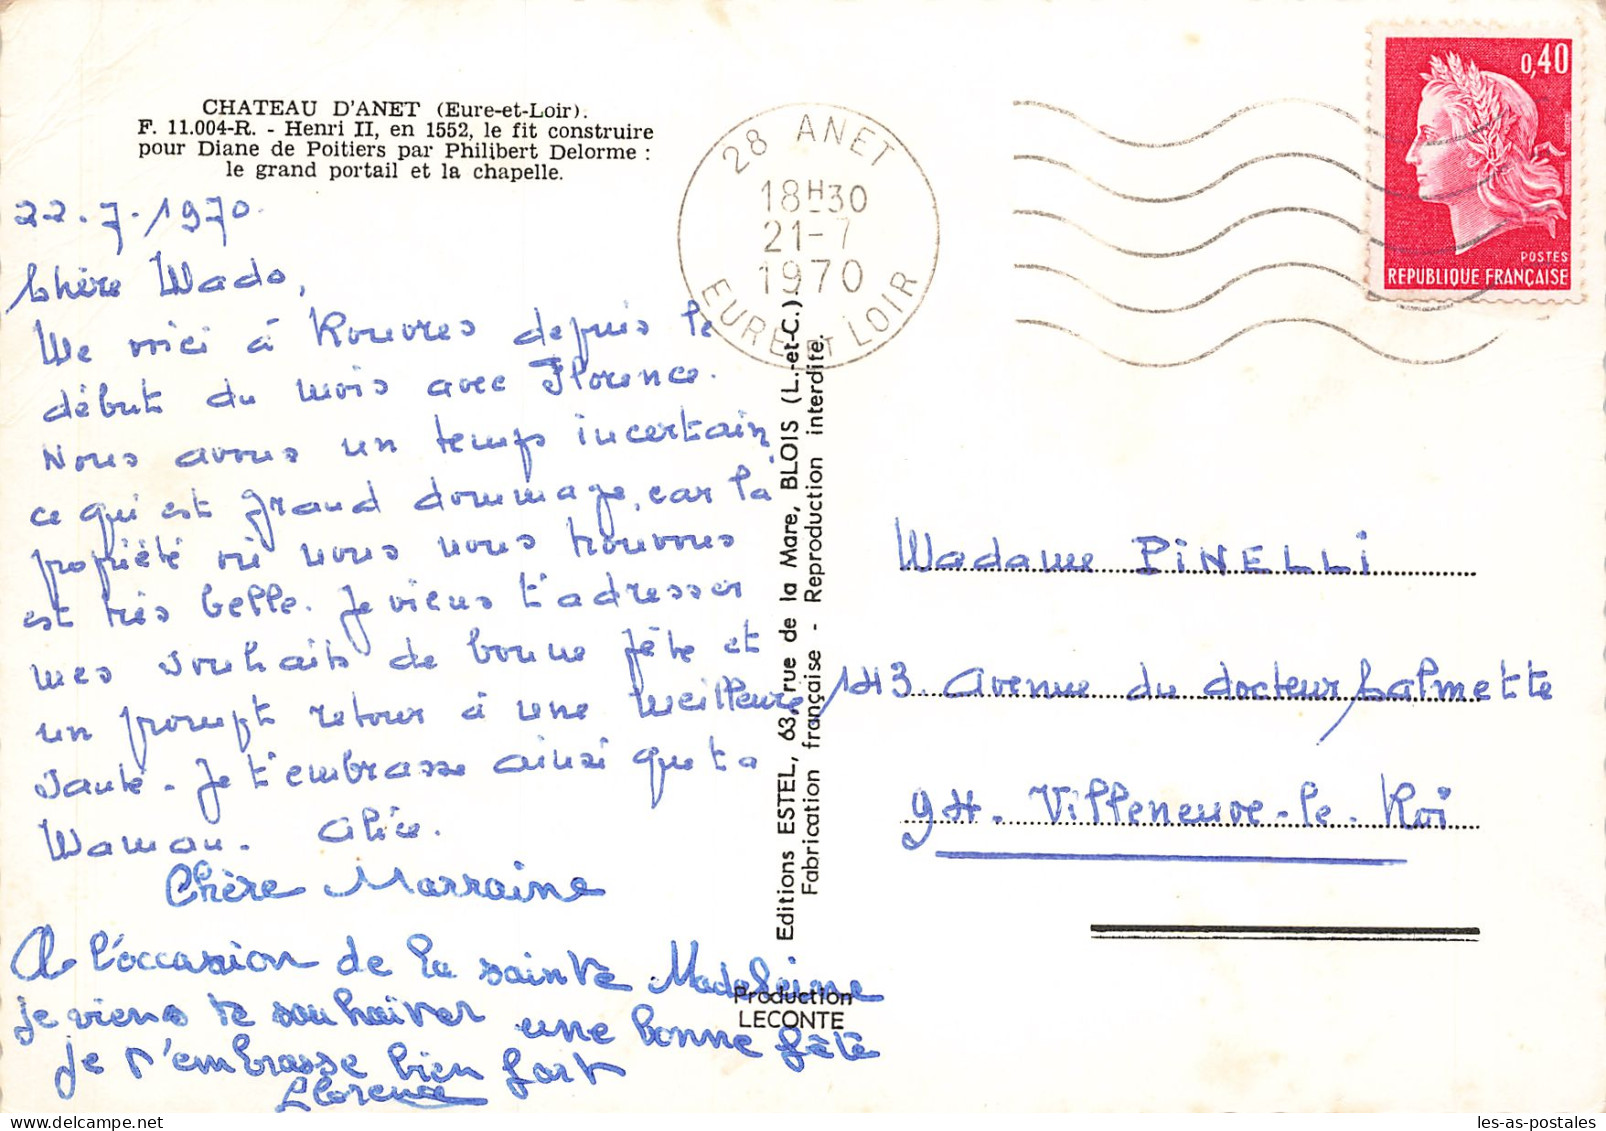 CHATEAU D'ANET (Eure-et-Loir).
F. 11.004-R. - Henri II, en 1552, le fit construire
pour Diane de Poitiers par Philibert Delorme :
le grand portail et la chapelle.
22.7.1970.
Chère Mado,
Me voici à Rouvres depuis le
début du mois avec Florence.
Nous avons un temps incertain
ce qui est grand dommage, car la
propriété où nous nous trouvons
est très belle. Je viens t'adresser
mes souhaits de bonne fête et
un prompt retour à une meilleure
santé. Je t'embrasse ainsi que ta
Maman. Alice.
Chère Marraine
A l'occasion de la sainte Madeleine
je viens te souhaiter une bonne fête
je t'embrasse bien fort
Florence
28 ANET
18H30
21-7
1970
EURE ET LOIR
0,40
POSTES
REPUBLIQUE FRANÇAISE
Editions ESTEL, 63, rue de la Mare, BLOIS (L.-et-C.)
Fabrication française - Reproduction interdite.
Production
LECONTE
Madame PINELLI
143. Avenue du docteur Calmette
94. Villeneuve-le-Roi
les-as-postales